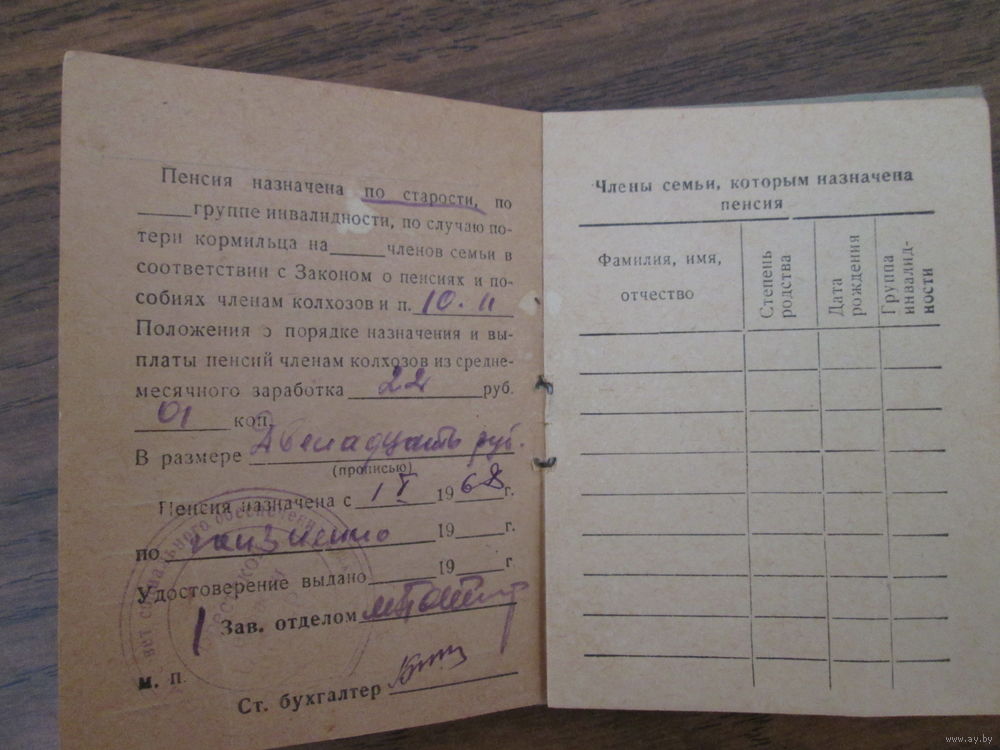 Пенсия назначена по старости, по
группе инвалидности, по случаю по-
тери кормильца на членов семьи в
соответствии с Законом о пенсиях и по-
собиях членам колхозов и п. 10.11
Положения о порядке назначения и вы-
платы пенсий членам колхозов из средне-
месячного заработка 22 руб.
01 коп.
В размере Двенадцать руб.
(прописью)
Пенсия назначена с 1 V 1968 г.
по пожизненно 19 г.
Удостоверение выдано 19 г.
Зав. отделом
м. п.
Ст. бухгалтер
социального обеспечения
Члены семьи, которым назначена
пенсия
Фамилия, имя,
отчество
Степень
родства
Дата
рождения
Группа
инвалид-
ности
www.ay.by